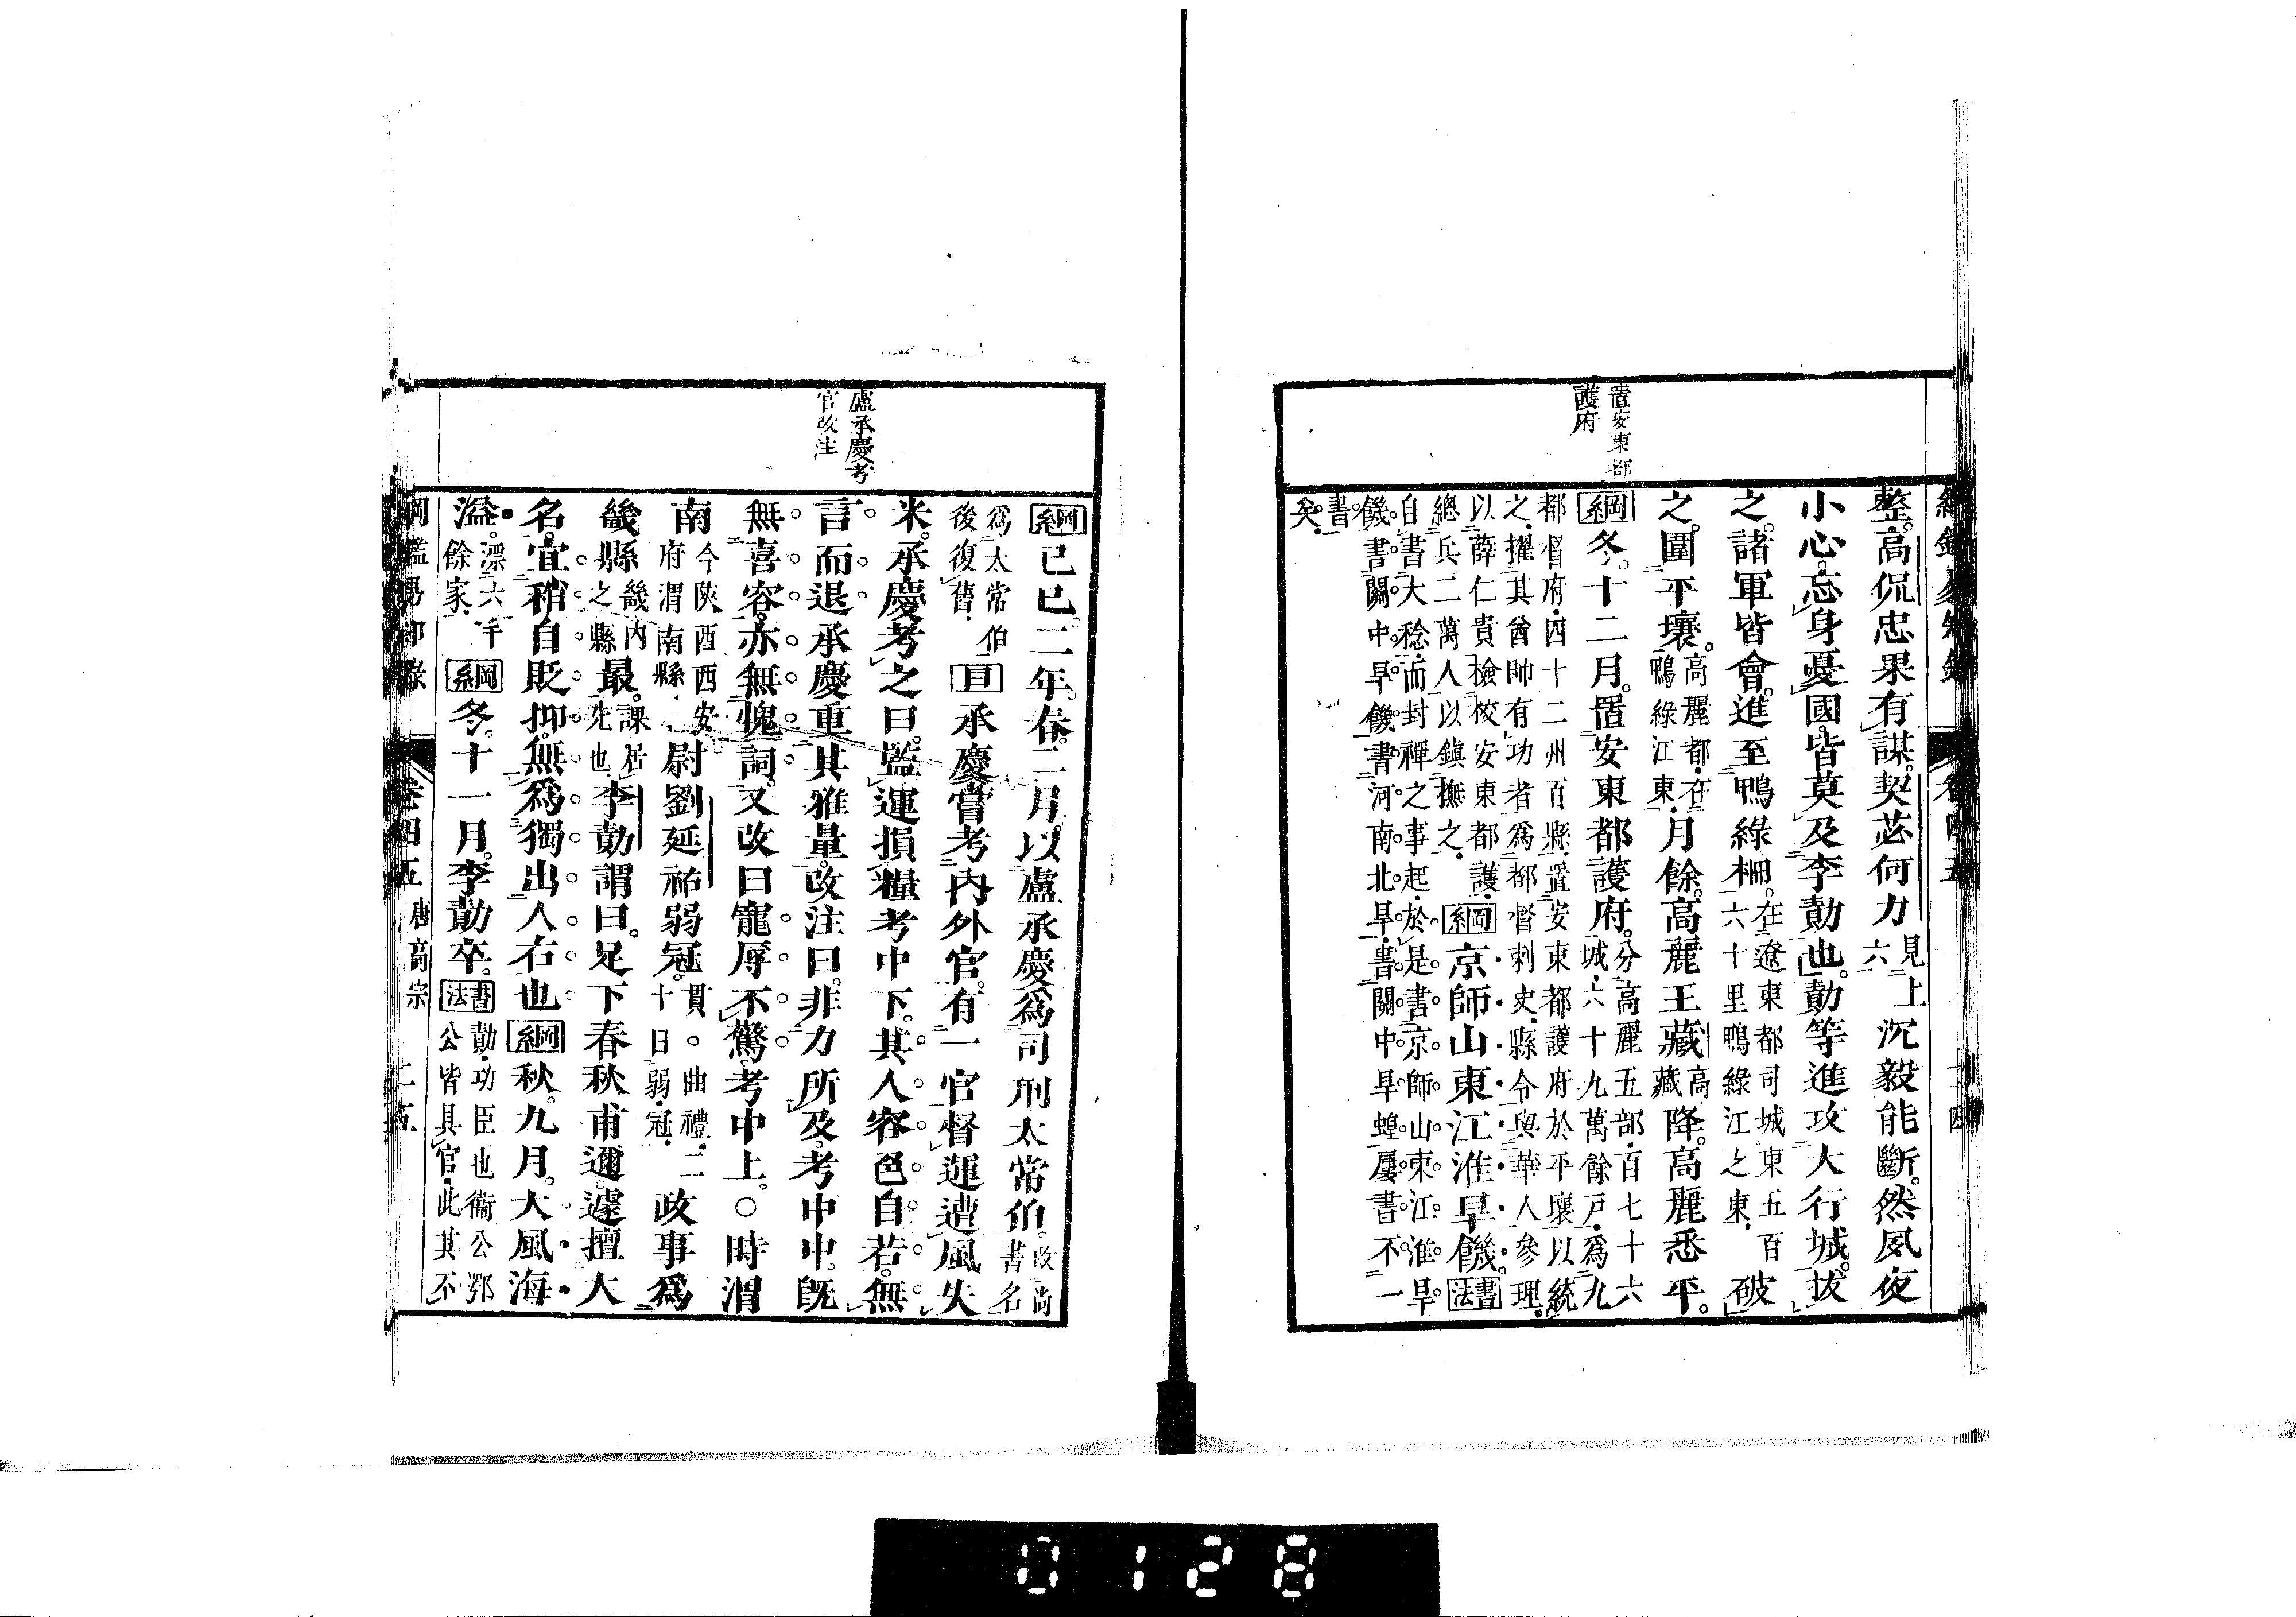 綱鑑易知錄　卷四五　十四
置安東都
護府
整。高侃忠果有謀。契苾何力見上六沉毅能斷。然夙夜
小心。忘身憂國。皆莫及李勣也。勣等進攻大行城。拔
之。諸軍皆會。進至鴨綠柵。在遼東都司城東五百六十里鴨綠江之東。破
之。圍平壤。高麗都在鴨綠江東。月餘。高麗王藏高藏降。高麗悉平。
綱冬。十二月。置安東都護府。分高麗五部百七十六城六十九萬餘戶爲九
都督府四十二州百縣置安東都護府於平壤以統
之擢其酋帥有功者爲都督刺史縣令與華人參理
以薛仁貴檢校安東都護總兵二萬人以鎭撫之綱京師山東江淮旱饑。書法
自書大稔而封禪之事起於是書京師山東江淮旱
饑書關中旱饑書河南北旱書關中旱蝗屢書不一
書矣
盧承慶考
官改注
綱己巳。二年。春。二月。以盧承慶爲司刑太常伯。改尚書名
爲太常伯後復舊目承慶嘗考內外官。有一官督運遭風失
米。承慶考之曰。監運損糧考中下。其人容色自若。無
言而退。承慶重其雅量。改注曰。非力所及。考中中。旣
無喜容。亦無愧詞。又改曰寵辱不驚。考中上。○時渭
南今陝西西安府渭南縣尉劉延祐弱冠。貫。曲禮二十曰弱冠政事爲
畿縣畿內之縣最。課居先也李勣謂曰。足下春秋甫邇。遽擅大
名。宜稍自貶抑。無爲獨出人右也綱秋。九月。大風海
溢。漂六千餘家綱冬。十一月。李勣卒。書法勣功臣也衞公鄂公皆具官此其不
綱鑑易知錄　卷四五　唐高宗　十五
0128